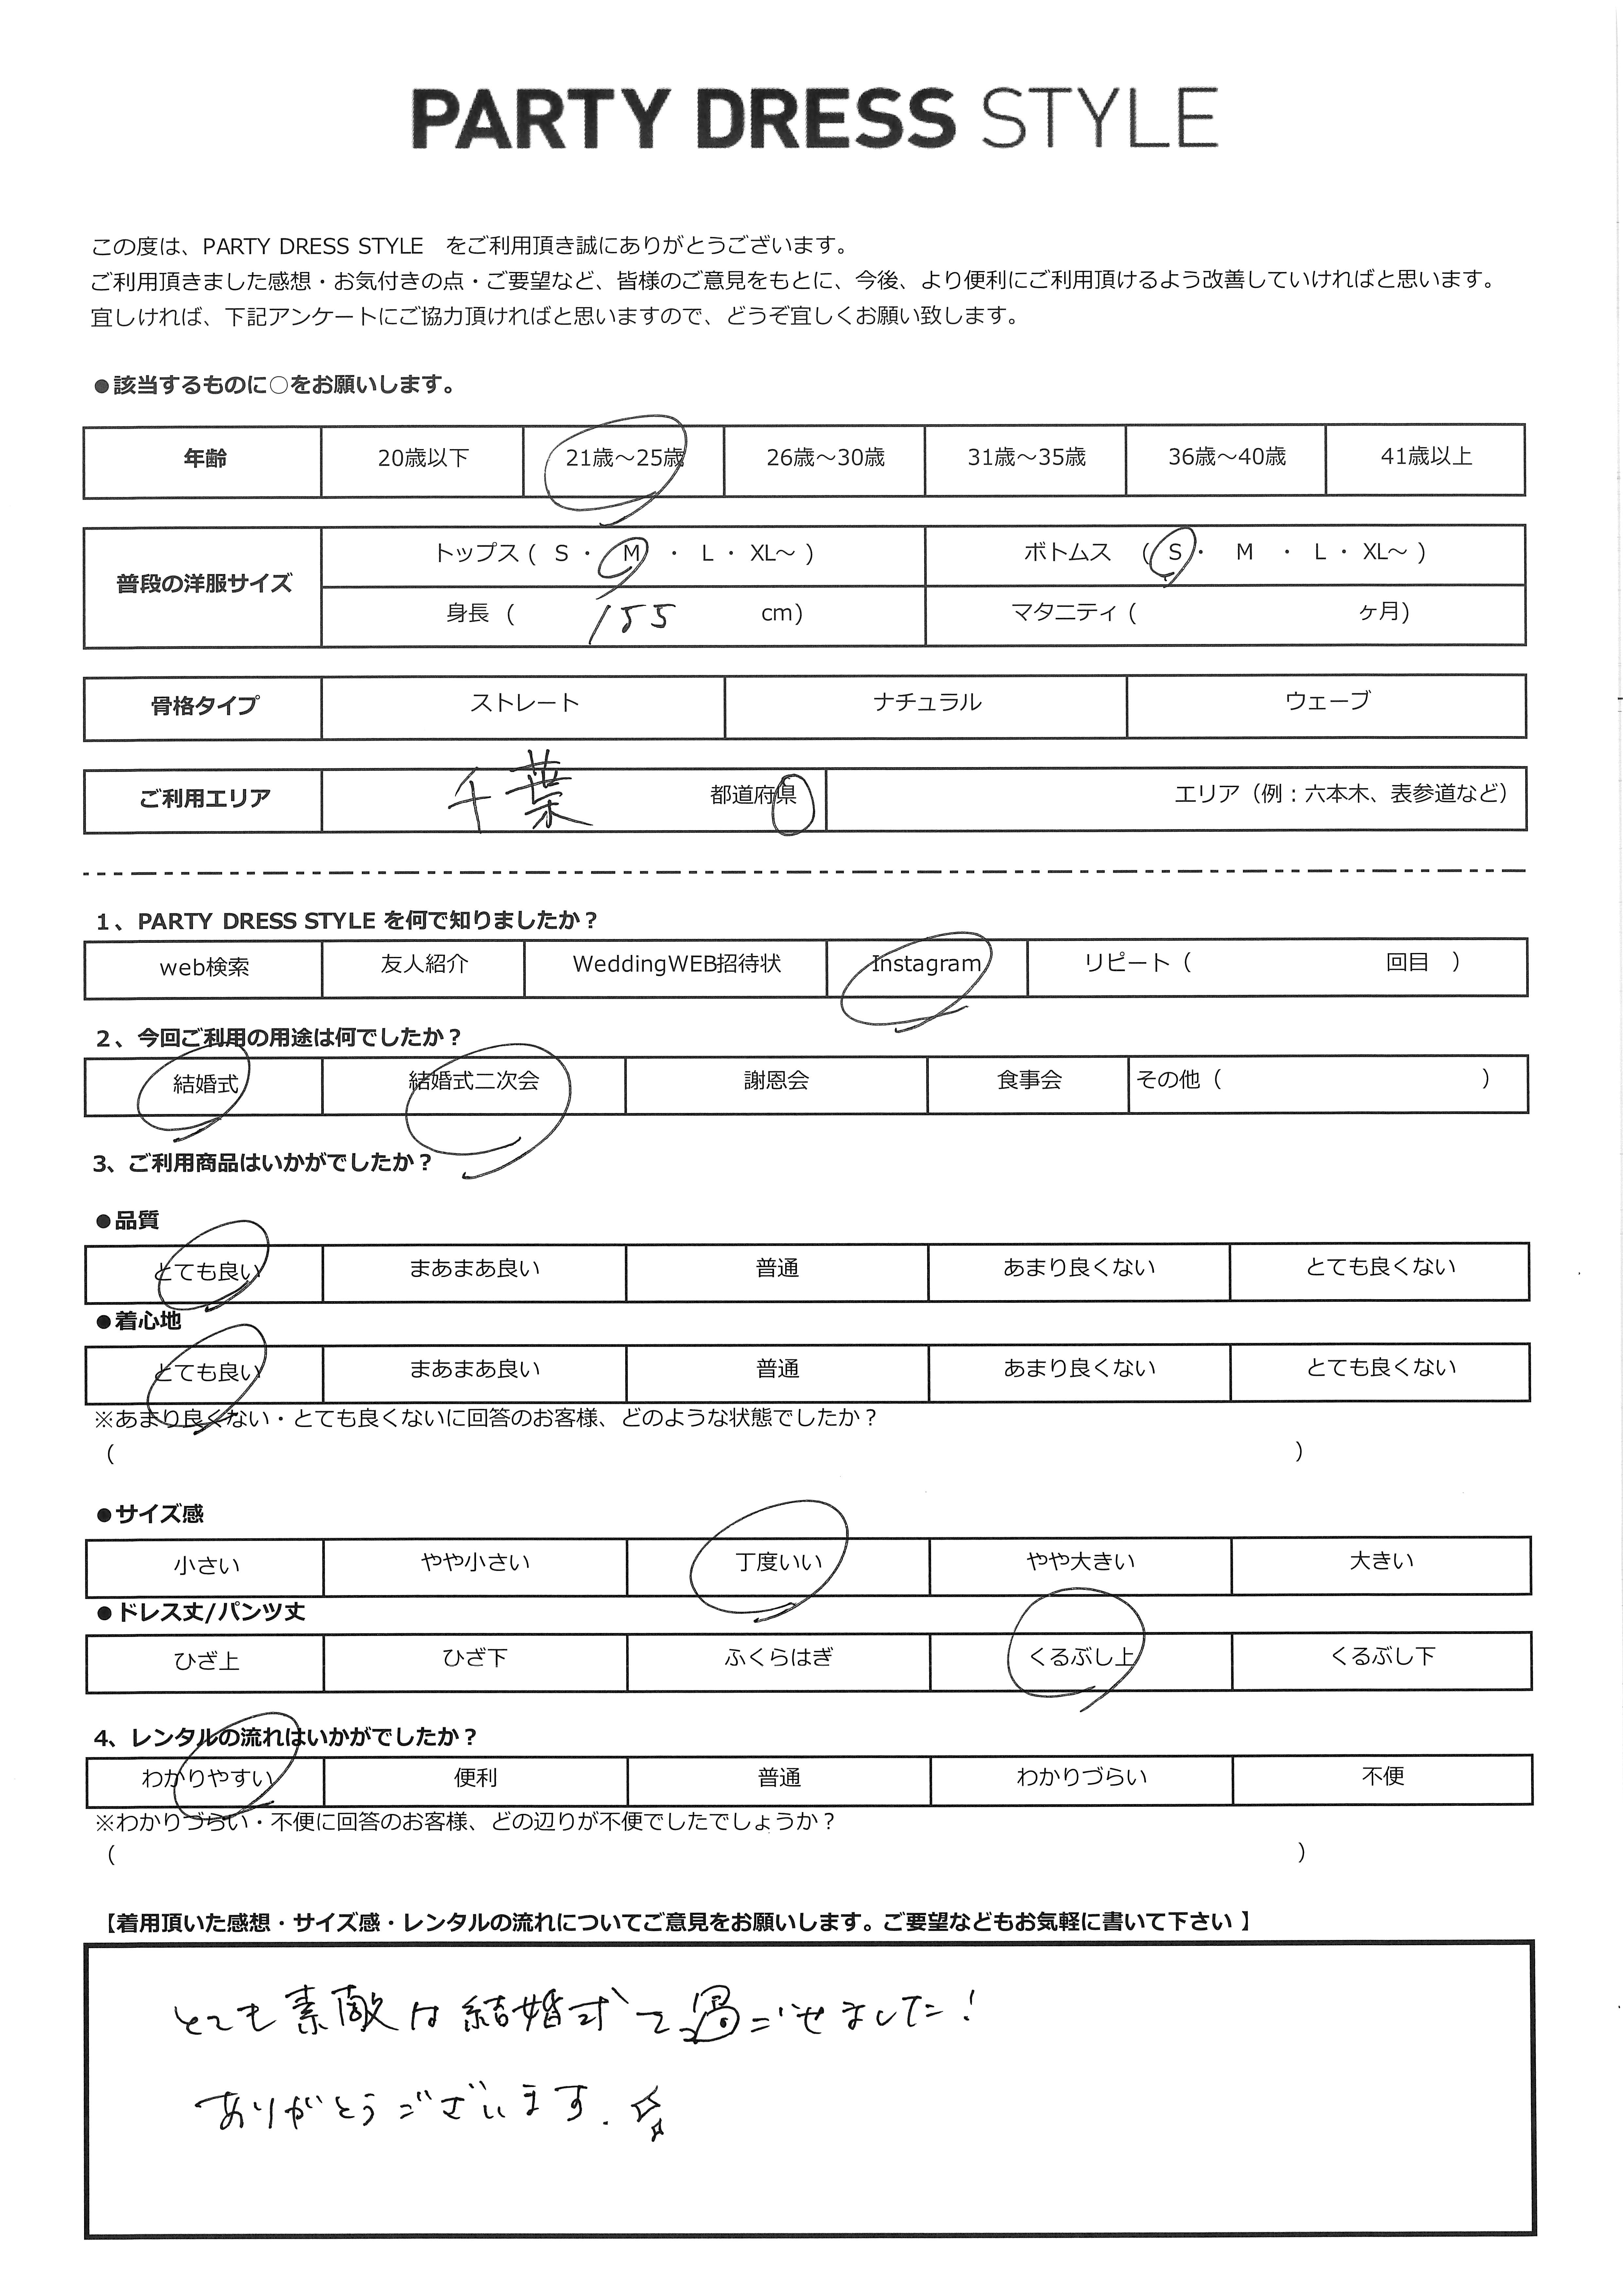 PARTY DRESS STYLE
この度は、PARTY DRESS STYLE　をご利用頂き誠にありがとうございます。
ご利用頂きました感想・お気付きの点・ご要望など、皆様のご意見をもとに、今後、より便利にご利用頂けるよう改善していければと思います。
宜しければ、下記アンケートにご協力頂ければと思いますので、どうぞ宜しくお願い致します。
●該当するものに○をお願いします。
年齢 20歳以下 21歳～25歳 26歳～30歳 31歳～35歳 36歳～40歳 41歳以上
普段の洋服サイズ
トップス ( S ・ M ・ L ・ XL～ ) ボトムス ( S ・ M ・ L ・ XL～ )
身長 ( 155 cm) マタニティ ( ヶ月)
骨格タイプ ストレート ナチュラル ウェーブ
ご利用エリア 千葉 都道府県 エリア（例：六本木、表参道など）
1、PARTY DRESS STYLE を何で知りましたか？
web検索 友人紹介 WeddingWEB招待状 Instagram リピート（ 回目 ）
2、今回ご利用の用途は何でしたか？
結婚式 結婚式二次会 謝恩会 食事会 その他（ ）
3、ご利用商品はいかがでしたか？
●品質
とても良い まあまあ良い 普通 あまり良くない とても良くない
●着心地
とても良い まあまあ良い 普通 あまり良くない とても良くない
※あまり良くない・とても良くないに回答のお客様、どのような状態でしたか？
（ ）
●サイズ感
小さい やや小さい 丁度いい やや大きい 大きい
●ドレス丈/パンツ丈
ひざ上 ひざ下 ふくらはぎ くるぶし上 くるぶし下
4、レンタルの流れはいかがでしたか？
わかりやすい 便利 普通 わかりづらい 不便
※わかりづらい・不便に回答のお客様、どの辺りが不便でしたでしょうか？
（ ）
【着用頂いた感想・サイズ感・レンタルの流れについてご意見をお願いします。ご要望などもお気軽に書いて下さい 】
とても素敵な結婚式で過ごせました！
ありがとうございます.